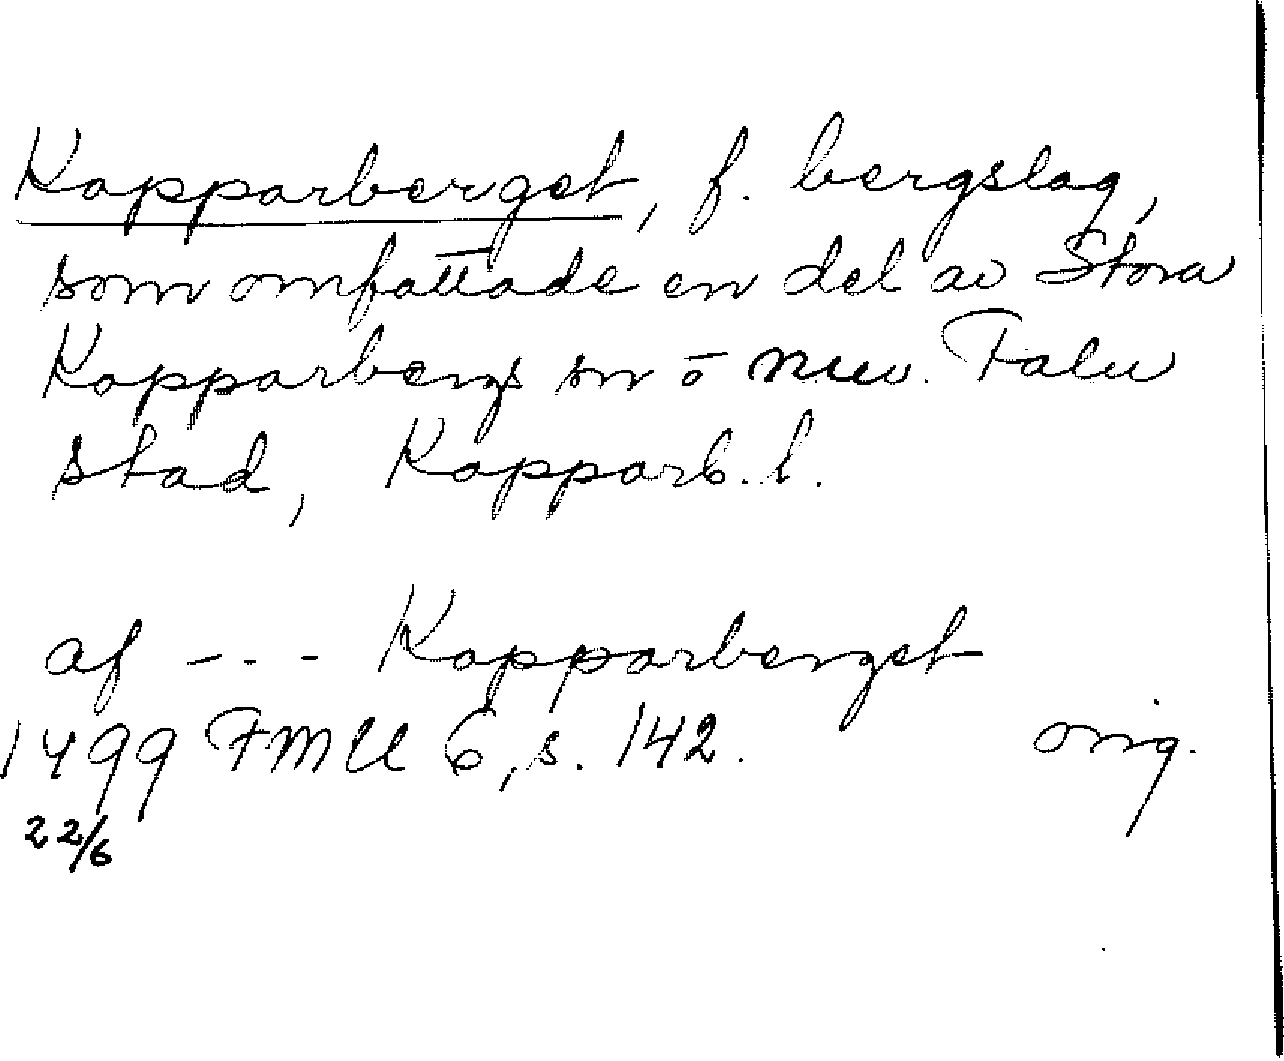 Kopparberget, f. bergslag,
som omfattade en del av Stora
Kopparbergs sn o nuv. Falu
stad, Kopparb. l.
af --- Kopparberget
1499 FMU 6, s. 142. orig.
22/6